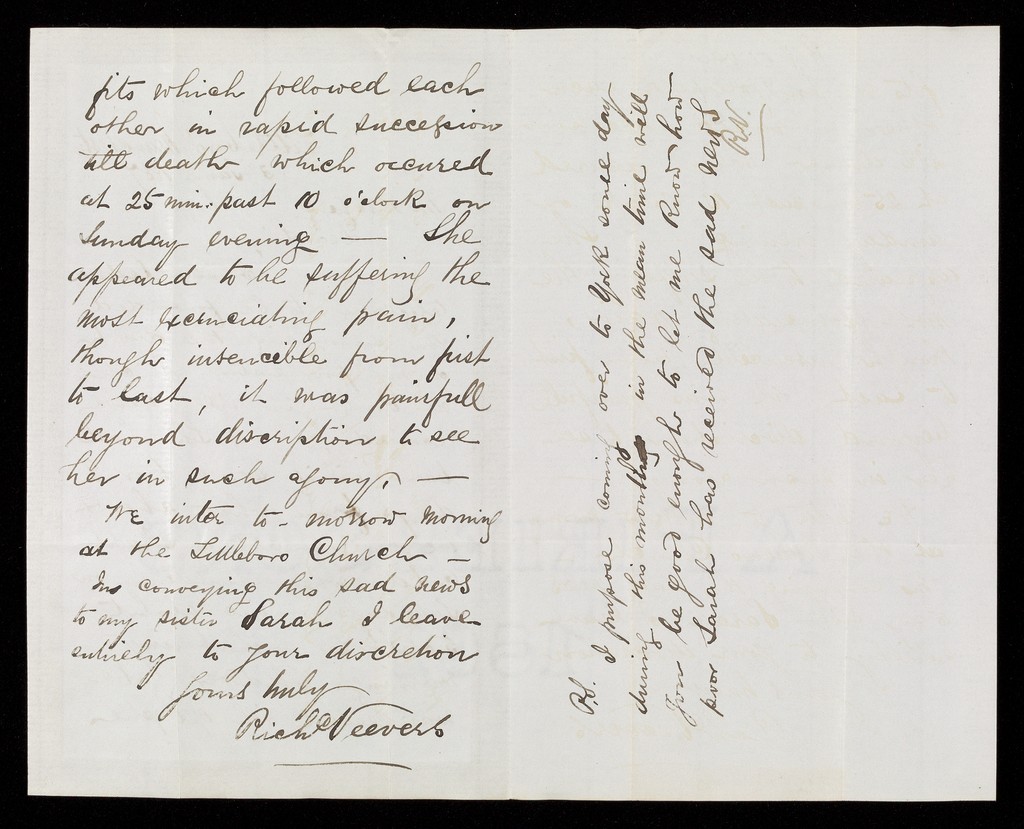 fits which followed each
other in rapid succession
till death which occured
at 25 min: past 10 o'clock on
Sunday evening — She
appeared to be suffering the
most excruciating pain,
though insencible from first
to last, it was painfull
beyond discription to see
her in such agony, —
We inter to-morrow morning
at the Littleboro Church —
In conveying this sad news
to my sister Sarah I leave
entirely to your discretion
Yours truly
Richd Veevers
P.S. I purpose coming over to York some day
during this month, in the mean time will
you be good enough to let me know how
poor Sarah has received the sad news
R.V.